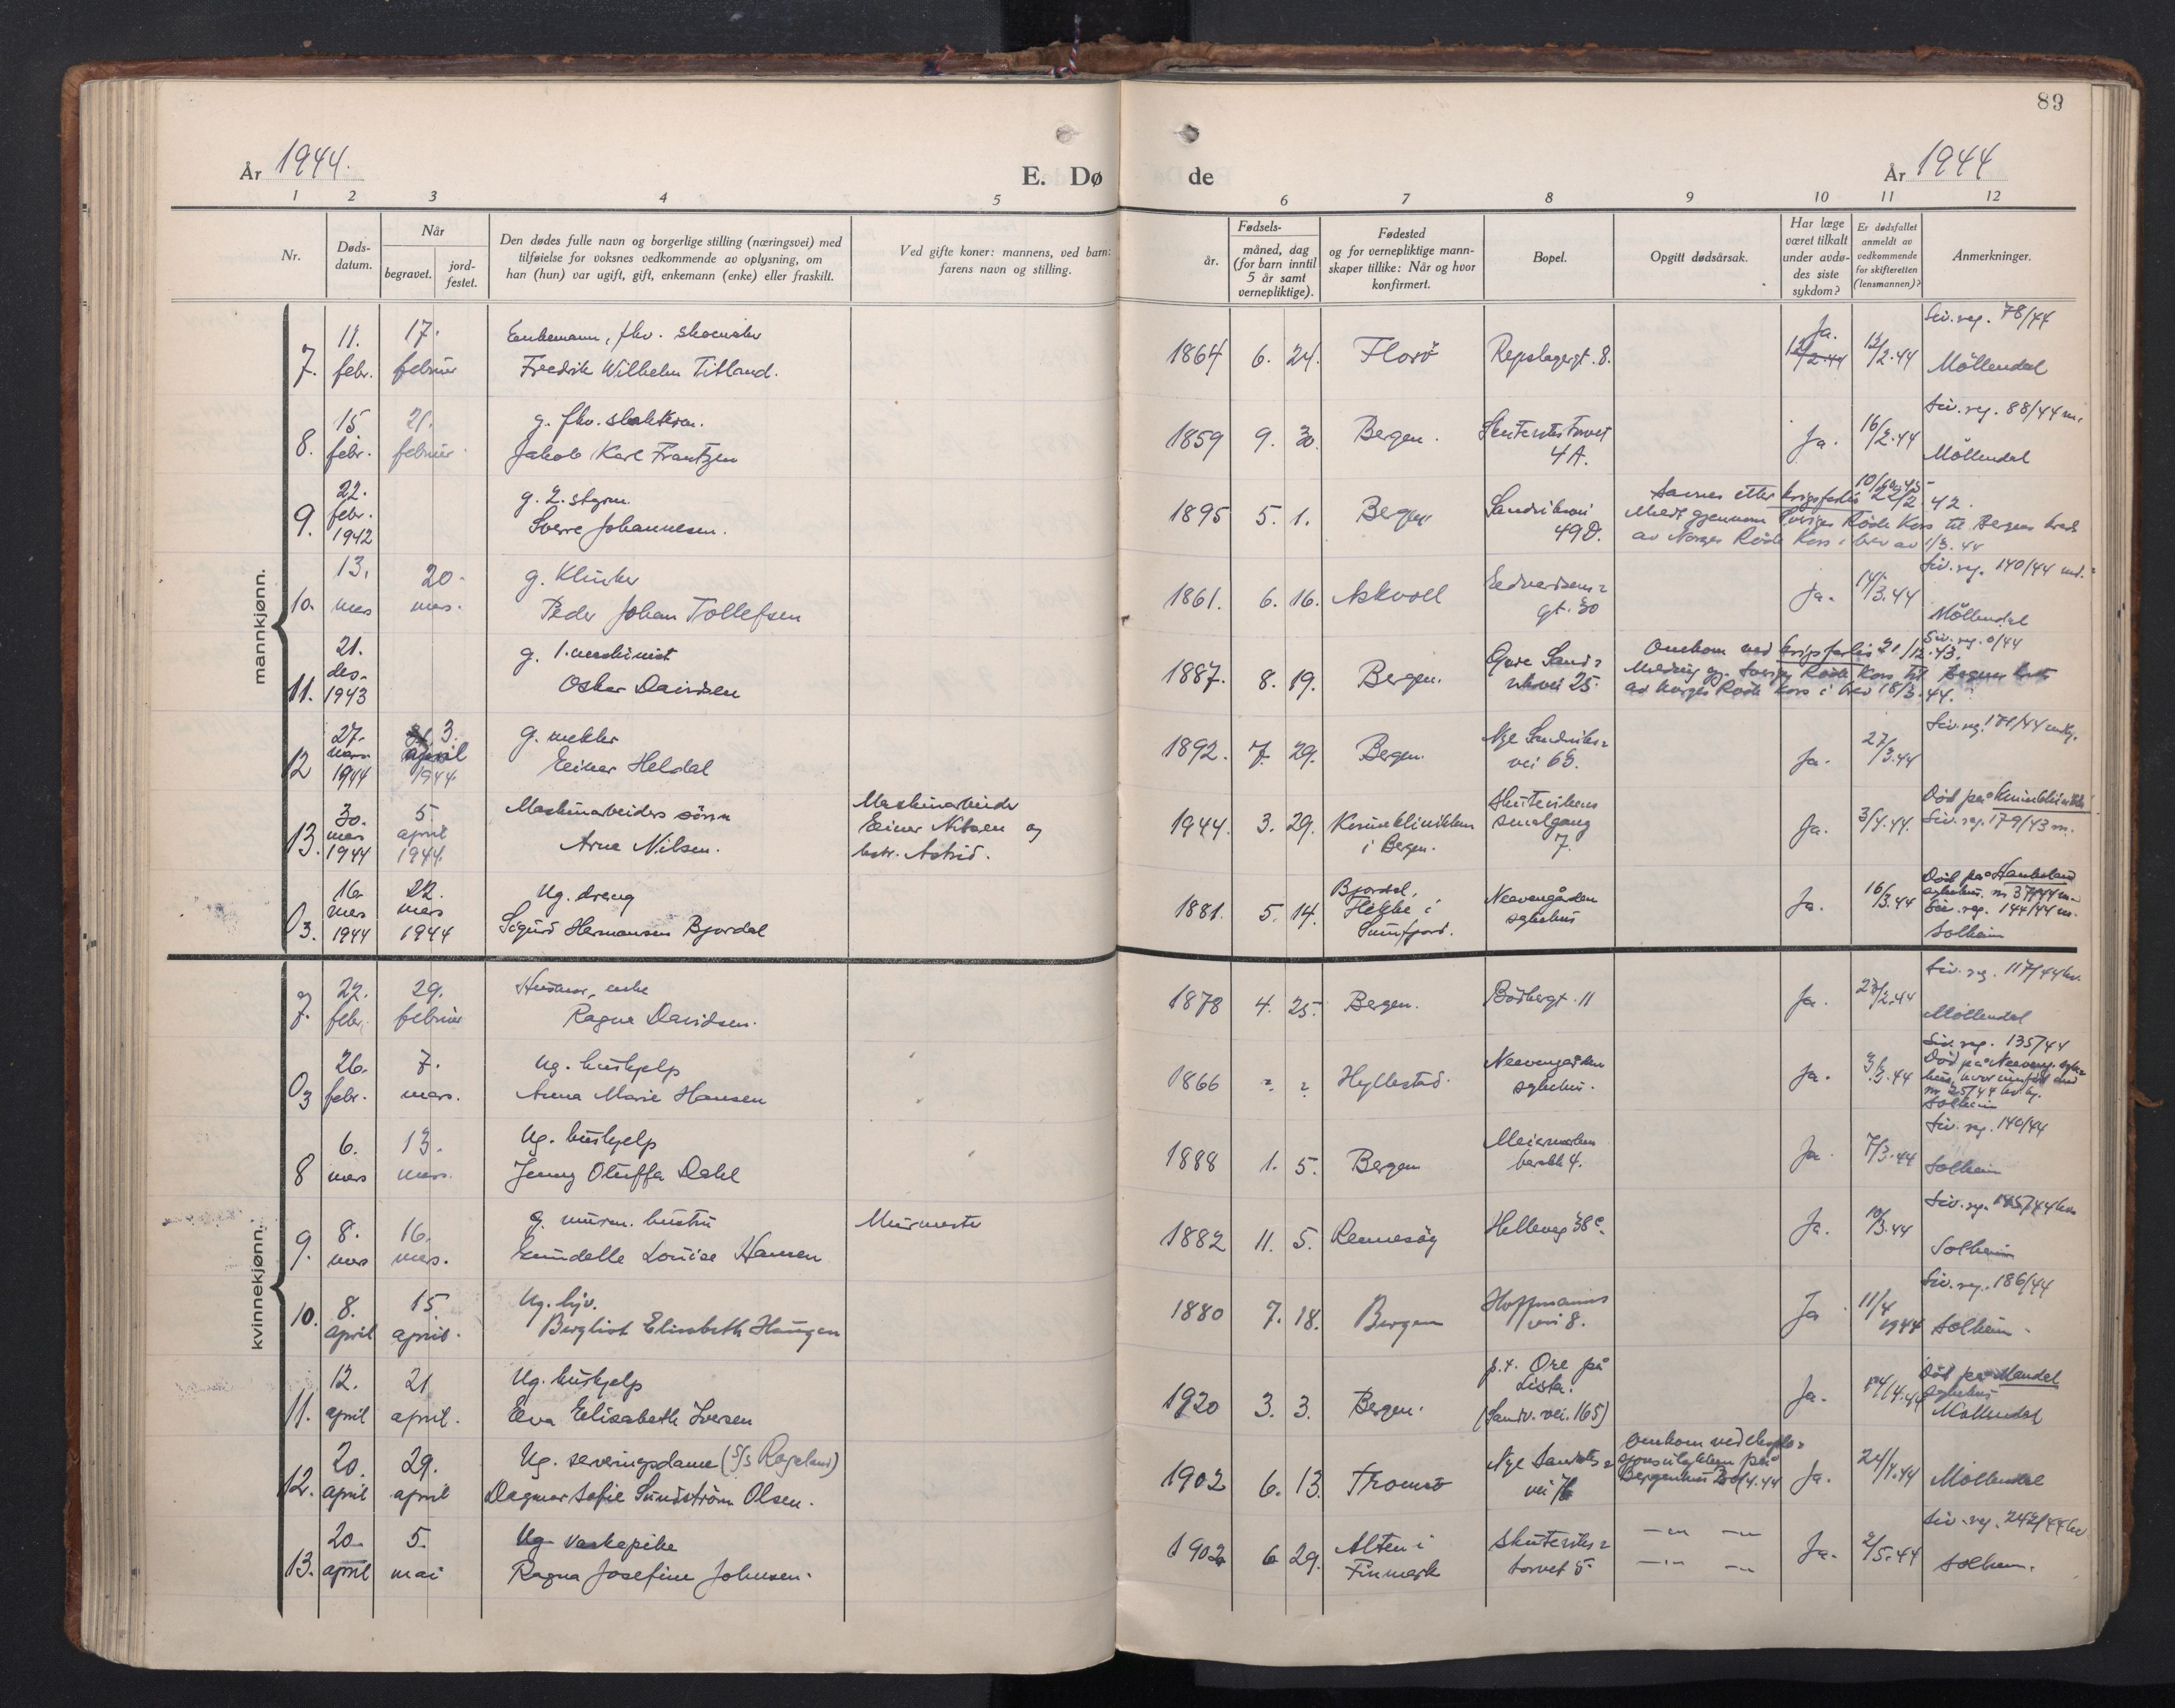 89
År 1944.
E. Dø de
År 1944
1 2 3 4 5 6 7 8 9 10 11 12
Nr.
Døds-
datum.
Når
begravet.
jord-
festet.
Den dødes fulle navn og borgerlige stilling (næringsvei) med
tilføielse for voksnes vedkommende av oplysning, om
han (hun) var ugift, gift, enkemann (enke) eller fraskilt.
Ved gifte koner: mannens, ved barn:
farens navn og stilling.
Fødsels-
år.
måned, dag
(for barn inntil
5 år samt
vernepliktige).
Fødested
og for vernepliktige mann-
skaper tillike: Når og hvor
konfirmert.
Bopel.
Opgitt dødsårsak.
Har læge
været tilkalt
under avdø-
des siste
sykdom?
Er dødsfallet
anmeldt av
vedkommende
for skifteretten
(lensmannen)?
Anmerkninger.
mannkjønn.
7. 11. febr. 17. februar
Enkemann, fhv. skomaker
Fredrik Wilhelm Titland.
1864 6. 24. Florö Repslagergt. 8. Ja. 12/2.44 12/2.44
Siv. reg. 78/44
Möllendal
8. 15 febr. 21. februar
g. fhv. slakterm.
Jakob Karl Frantzen
1859 9. 30. Bergen. Skuteviktorvet 4A. Ja. 16/2.44
Siv. reg. 88/44 m.
Möllendal
9. 22. febr. 1942
g. 2. styrm.
Sverre Johannesen.
1895 5. 1. Bergen Sandviksvei 49D.
Savnes etter krigsforlis 22/2.42.
Meldt gjennom Sveriges Röde Kors til Bergens krets
av Norges Röde Kors i brev av 1/3.44
10. 13. mars 20. mars.
g. Klinker
Peder Johan Tollefsen
1861. 6. 16. Askvoll Edvardsens- gt. 30 Ja. 14/3.44
Siv. reg. 140/44
Möllendal
11. 21. des. 1943
g. 1. maskinist
Oskar Davidsen
1887. 8. 19. Bergen. Övre Sand- viksvei 25.
Siv. reg. 0/44
Omkom ved krigsforlis 21/12.43.
Melding gj. Sveriges Röde Kors til Bergens krets
av Norges Röde Kors i brev 18/3.44.
12 27. mars 1944 3. april 1944
g. mekler
Einar Heldal
1892. 7. 29. Bergen. Nye Sandviks- vei 63. Ja. 27/3.44
Siv. reg. 171/44
13. 30. mars 1944 5. april 1944
Maskinarbeiders sönn
Arne Nilsen.
Maskinarbeider
Einar Nilsen og
hstr. Astrid.
1944. 3. 29. Kvinneklinikken i Bergen. Skutevikens smalgang 7. Ja. 3/4.44.
Död på Kvinneklinikken
Siv. reg. 179/43 m.
03. 16. mars 1944 22. mars 1944
Ug. dreng
Sigurd Hermansen Bjordal
1881. 5. 14. Bjordal, Hekke i Sunnfjord. Neevengården sykehus Ja. 16/3.44
Död på Haukeland
sykehus. nr 37/44 m.
Siv. reg. 144/44 m.
Solheim
kvinnekjønn.
7. 22. febr. 29. februar
Husmor, enke
Ragna Davidsen.
1878 4. 25. Bergen. Bödkergt. 11 Ja. 23/2.44
Siv. reg. 117/44 kv.
Möllendal
03 26. febr. 7. mars.
Ug. hushjelp
Anna Marie Hansen
1866 ? ? Hyllestad. Neevengården sykehus. Ja. 3/3.44
Siv. reg. 135/44
Död på Neeveng. syke-
hus, hvor innfört und
nr 25/44
Solheim
8 6. mars 13. mars.
Ug. hushjelp
Jenny Oluffa Dahl
1888 1. 5. Bergen Meiermarken barakk 4. Ja. 7/3.44
Siv. reg. 140/44
Solheim
9. 8. mars 16. mars.
g. murm. hustru
Gundelle Louise Hansen
Murmester
1882 11. 5. Rennesöy Helleveg 38c. Ja. 10/3.44
Siv. reg. 145/44 kv
Solheim
10. 8. april 15. april.
Ug. hjv.
Bergliot Elisabeth Haugen
1880 7. 18. Bergen Hoffmanns vei 8. Ja 11/4 1944
Siv. reg. 186/44
Solheim.
11. 12. april 21 april.
Ug. hushjelp
Eva Elisabeth Iversen
1920 3. 3. Bergen. p.t. Ore på Lista. (Sandv. vei. 165) Ja. 14/4.44
Död på Mandal
sykehus
Möllendal
12. 20. april 29. april
Ug. serveringsdame (S/S Rogaland)
Dagmar Sofie Sundström Olsen.
1902 6. 13. Tromsö Nye Sandviks- vei
Omkom ved eksplo-
sjonsulykken på
Bergenhus 20/4.44
Ja. 24/4.44 Möllendal
13. 20. april 5. mai
Ug. vaskepike
Ragna Josefine Johnsen.
1902 6 29. Alten i Finmark Skuteviks- torvet 5 —„— —„— Ja. 2/5.44
Siv. reg. 242/44 kv
Solheim.